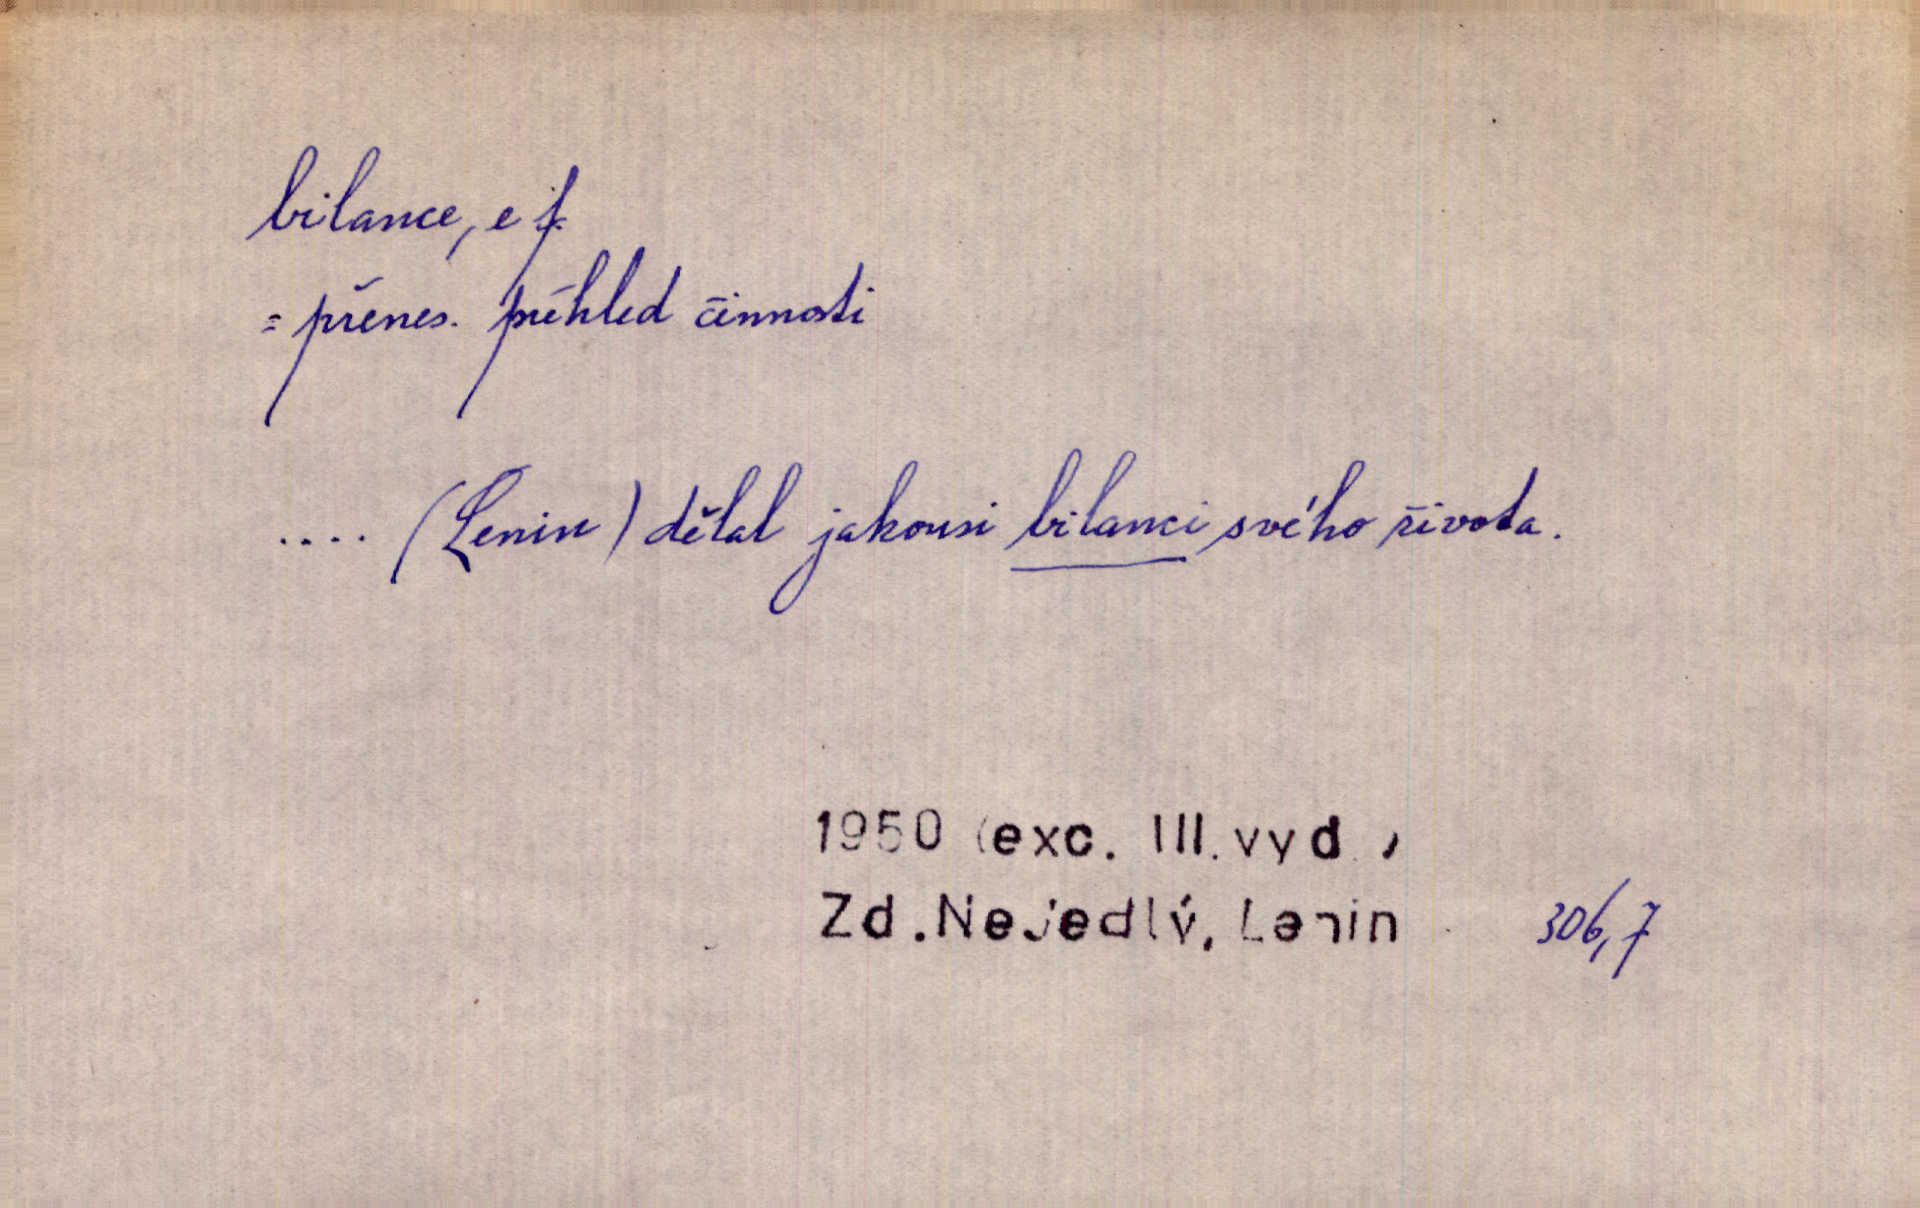 bilance, e f.
= přenes. přehled činnosti
.... (Lenin) dělal jakousi bilanci svého života.
1950 (exc. III. vyd.)
Zd. Nejedlý, Lenin 306,7